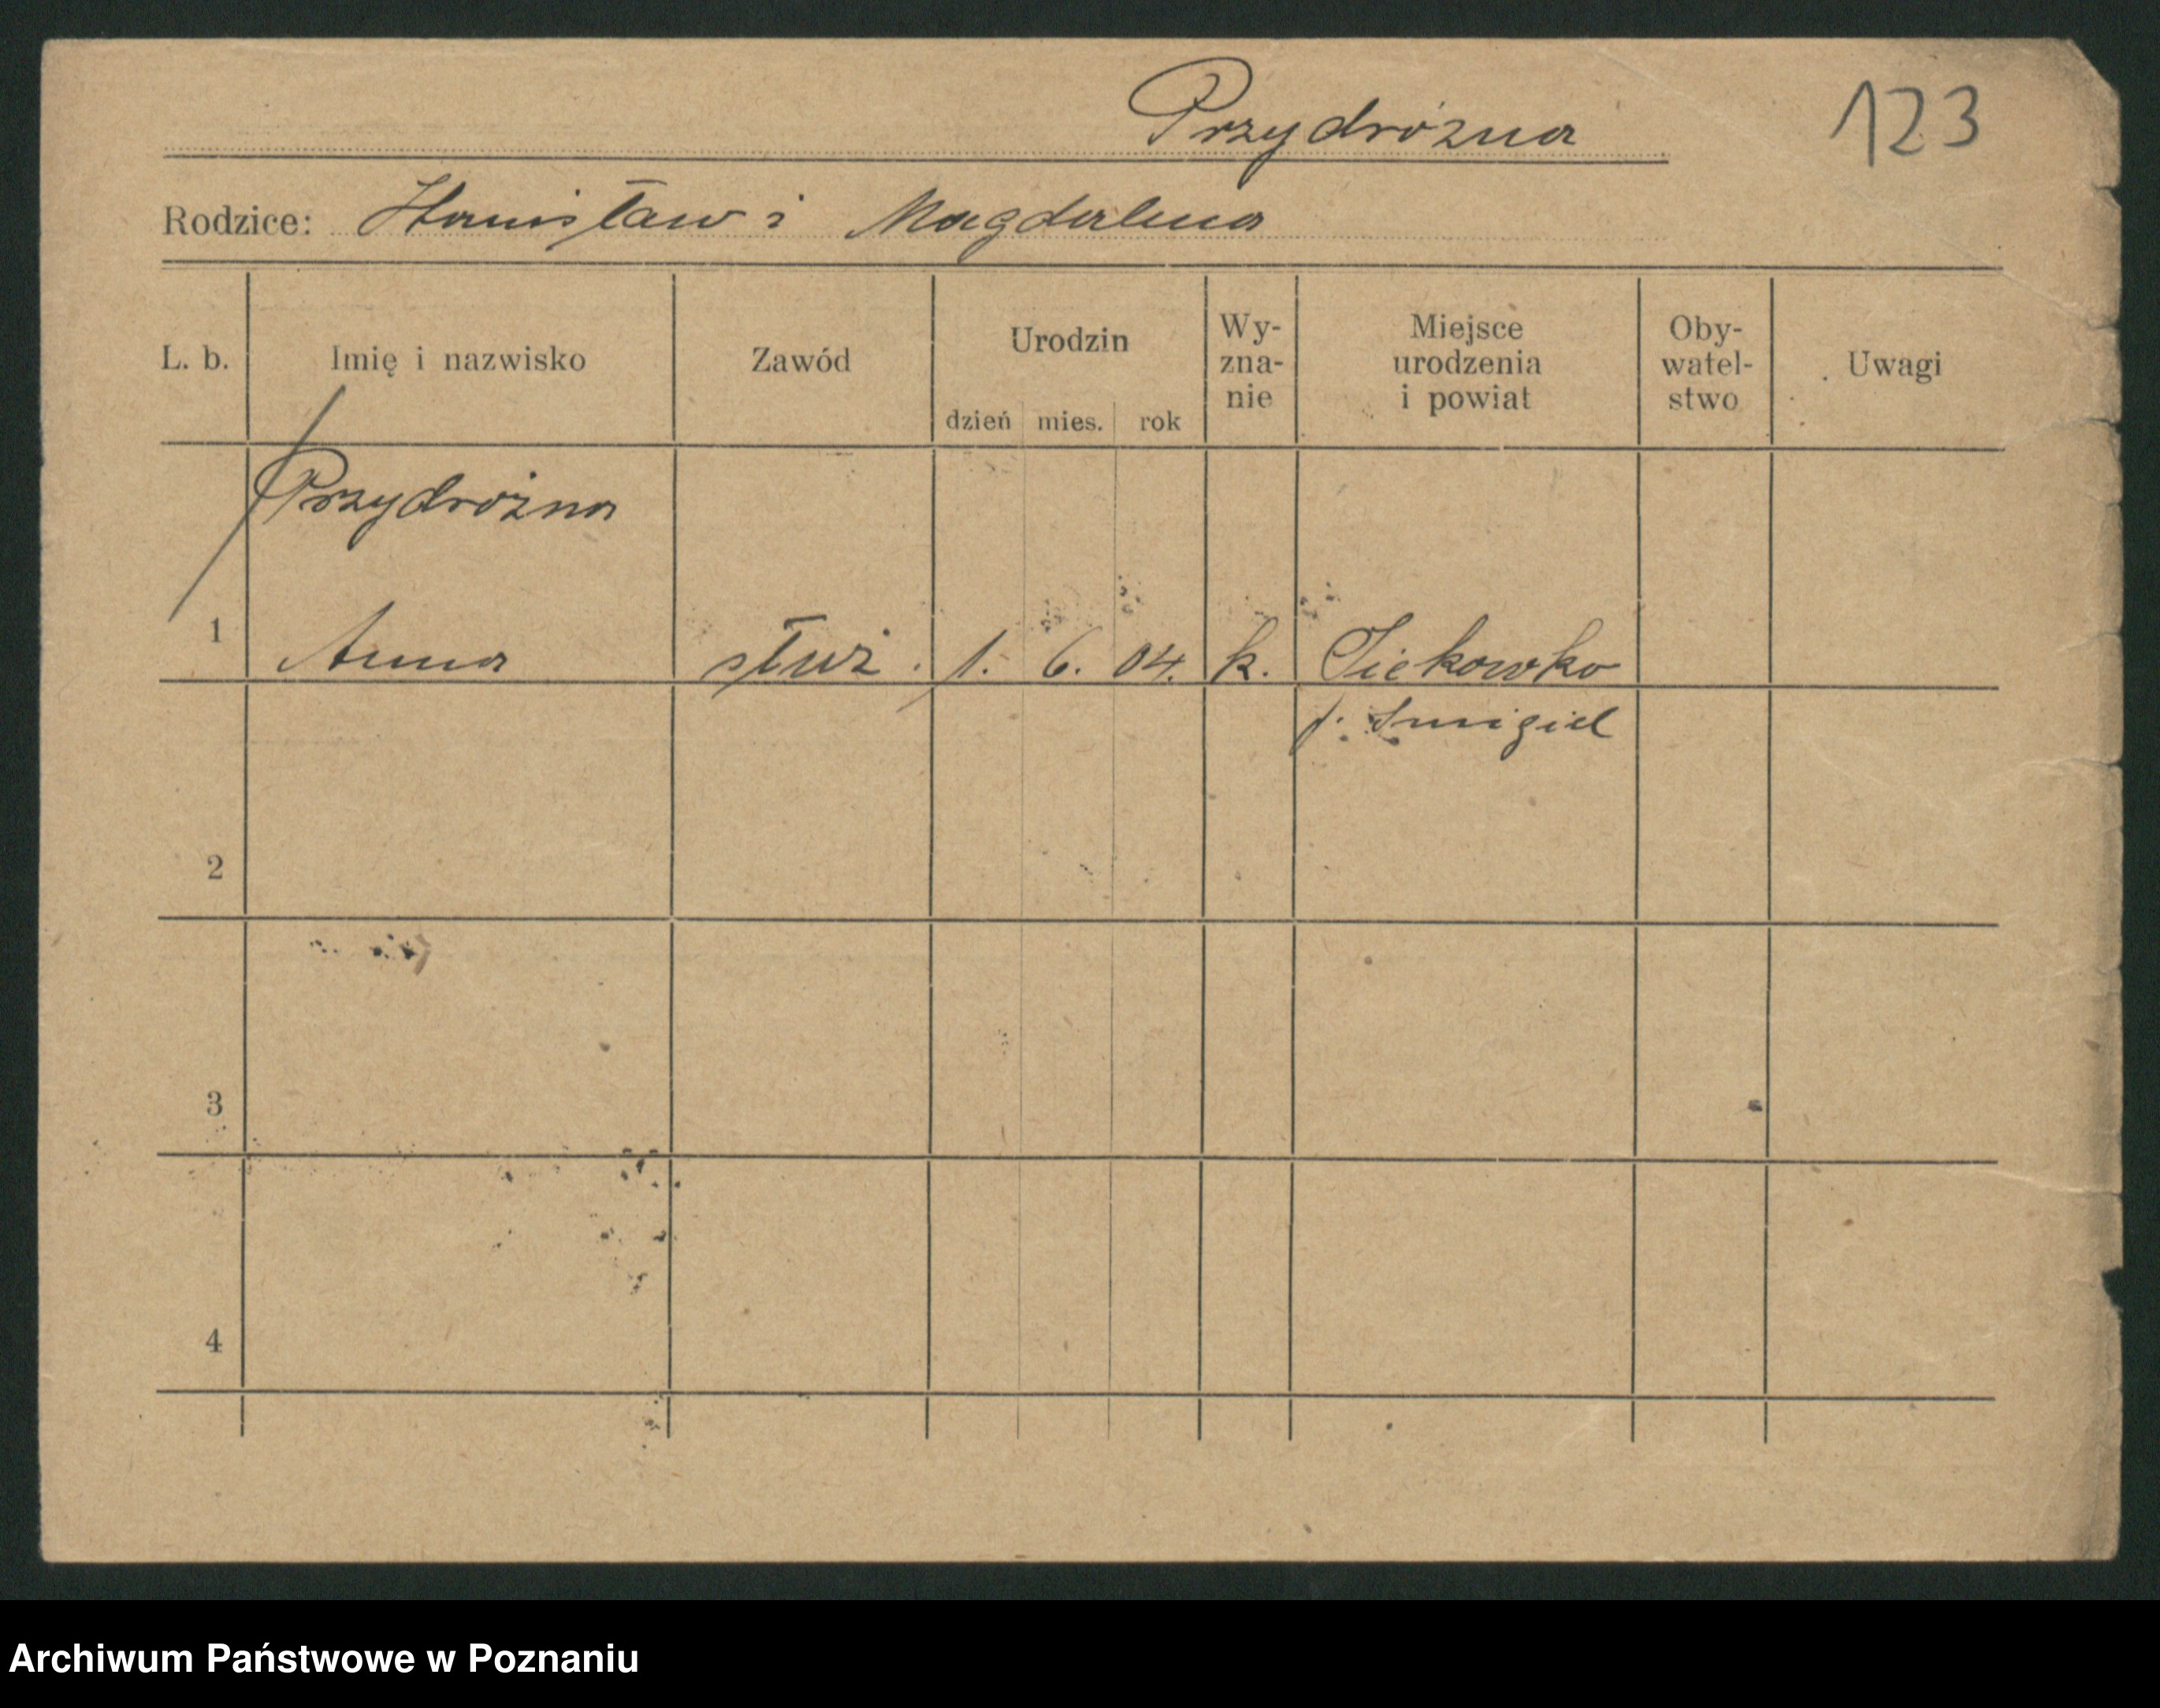 Przydrożna 123
Rodzice: Stanisław i Magdalena
L. b. Imię i nazwisko Zawód Urodzin dzień mies. rok Wy-zna-nie Miejsce urodzenia i powiat Oby-watel-stwo Uwagi
Przydrożna
1 Anna służ. 1. 6. 04. k.
p. Śmigiel
2
3
4
Archiwum Państwowe w Poznaniu